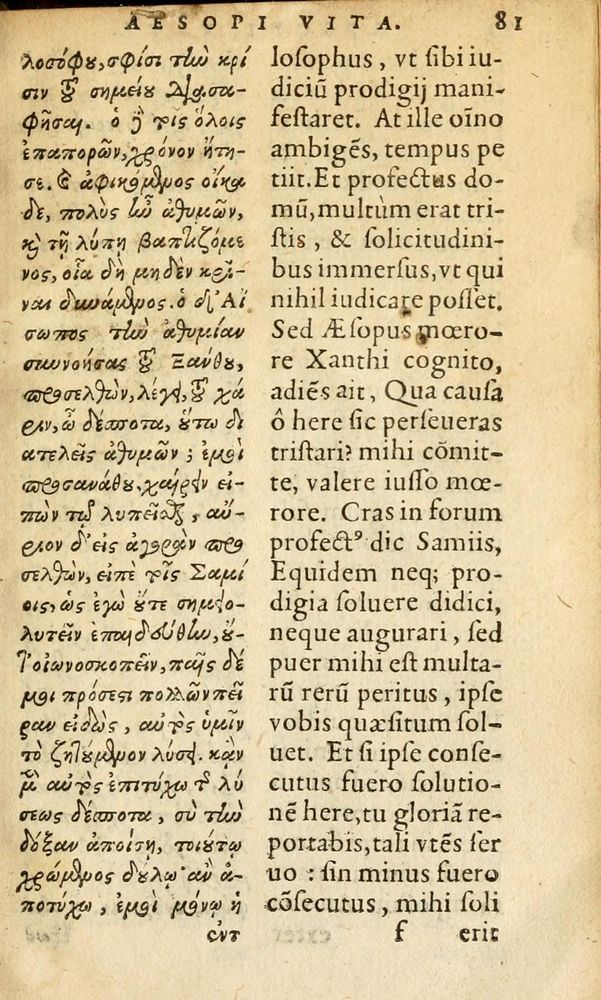 AESOPI VITA. 81
λοσόφου, σφίσι τὴν κρί
σιν τοῦ σημείου διασα-
φῆσαι. ὁ δὲ τοῖς ὅλοις
ἐπαπορῶν, χρόνον ᾔτη-
σε. καὶ ἀφικόμενος οἴκα
δε, πολὺς ἦν ἀθυμῶν,
καὶ τῇ λύπῃ βαπτιζόμε
νος, οἷα δὴ μηδὲν κρῖ-
ναι δυνάμενος. ὁ δ' Αἴ
σωπος τὴν ἀθυμίαν
συννοήσας τοῦ Ξάνθου,
προσελθὼν, λέγει, τοῦ χά
ριν, ὦ δέσποτα, οὕτω δι
ατελεῖς ἀθυμῶν; ἐμοὶ
προσανάθου, χαίρειν εἰ-
πὼν τῷ λυπεῖσθαι, αὔ-
ριον δ' εἰς ἀγορὰν προ
σελθὼν, εἰπὲ τοῖς Σαμί
οις, ὡς ἐγὼ οὔτε σημειο-
λυτεῖν ἐπαιδεύθην, οὔ-
τ' οἰωνοσκοπεῖν, παῖς δέ
μοι πρόσεστι πολλῶν πεῖ
ραν εἰδὼς, αὐτὸς ὑμῖν
τὸ ζητούμενον λύσει. κἂν
μὲν αὐτὸς ἐπιτύχω τῆς λύ
σεως δέσποτα, σὺ τὴν
δόξαν ἀποίσῃ, τοιούτῳ
χρώμενος δούλῳ· ἂν ἀ-
ποτύχω, ἐμοὶ μόνῳ ἡ
ἐντ
losophus, vt sibi iu-
diciū prodigij mani-
festaret. At ille oīno
ambigēs, tempus pe
tiit. Et profectus do-
mū, multùm erat tri-
stis, & solicitudini-
bus immersus, vt qui
nihil iudicare posset.
Sed Æsopus mœro-
re Xanthi cognito,
adiēs ait, Qua causa
ô here sic perseueras
tristari? mihi cōmit-
te, valere iusso mœ-
rore. Cras in forum
profectꝰ dic Samiis,
Equidem neq; pro-
digia soluere didici,
neque augurari, sed
puer mihi est multa-
rū rerū peritus, ipse
vobis quæsitum sol-
uet. Et si ipse conse-
cutus fuero solutio-
nē here, tu gloriā re-
portabis, tali vtēs ser
uo : sin minus fuero
cōsecutus, mihi soli
f erit